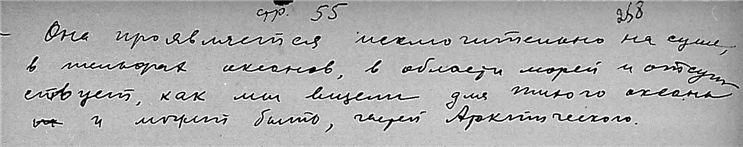 стр. 55 258
Она проявляется исключительно на суше,
в шельфах океанов, в области морей и отсут
ствует, как мы видели для Тихого океана
и может быть, частей Арктического.